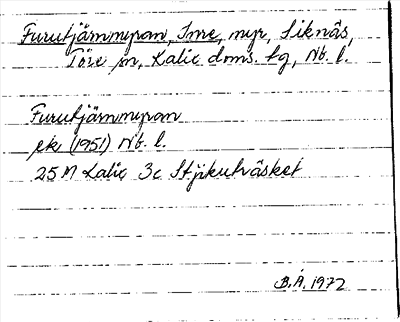 Furutjärnmyran, Inre, myr, Siknäs,
Töre sn, Kalix dms. tg, Nb. l.
Furutjärnmyran
ek. (1951) Nb. l.
25 M Kalix 3c Stijikuträsket
B.Å. 1972